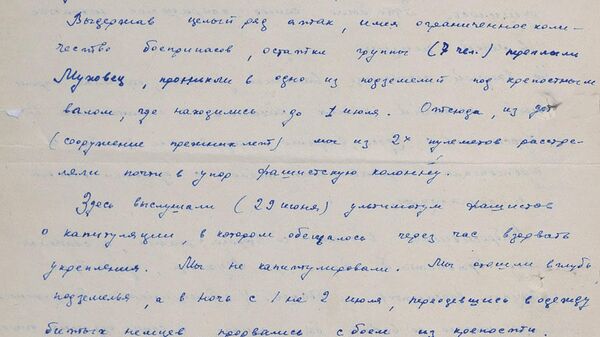 Выдержав целый ряд атак, имея ограниченное коли-
чество боеприпасов, остатки группы (7 чел.) проплыли
Муховец, проникли в одно из подземелий под крепостным
валом, где находились до 1 июля. Отсюда, из дот
(сооружение прежних лет) мы из 2х пулеметов расстре-
ляли почти в упор фашистскую колонну.
Здесь выслушали (29 июня) ультиматум фашистов
о капитуляции, в котором обещалось через час взорвать
укрепления. Мы не капитулировали. Мы отошли вглубь
подземелья, а в ночь с 1 на 2 июля, переодевшись в одежду
битых немцев прорвались с боем из крепости.